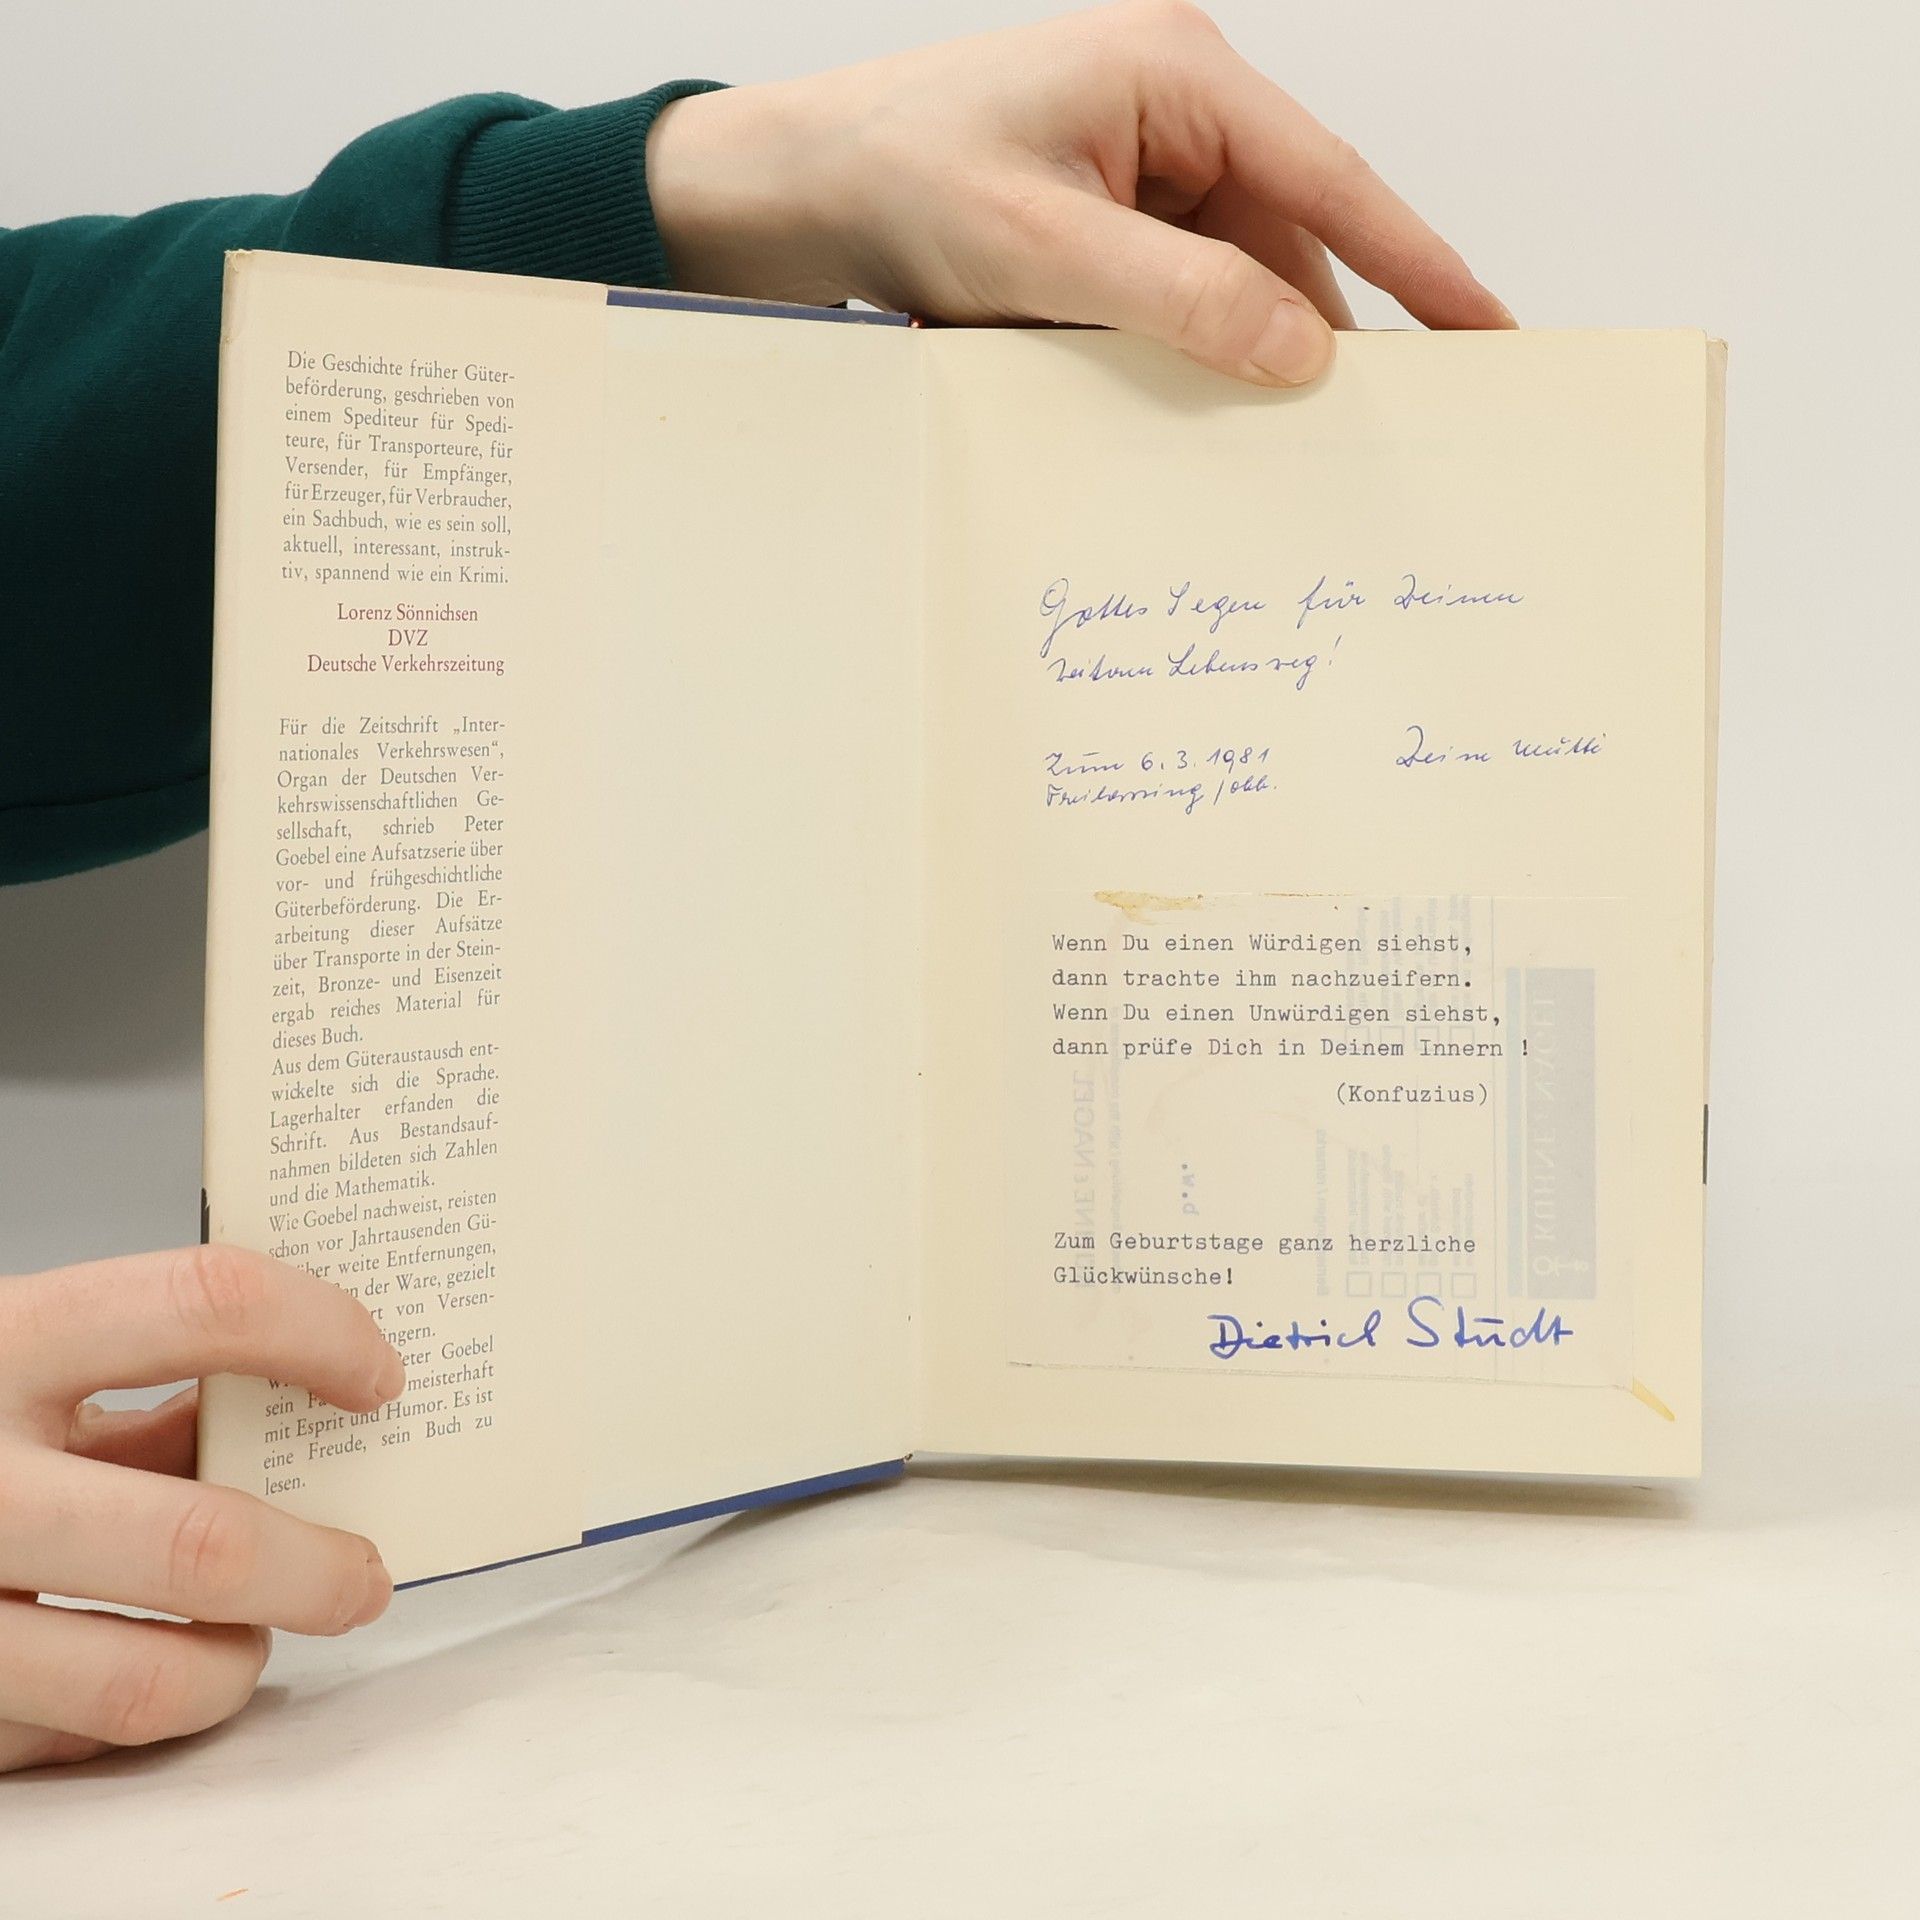 Die Geschichte früher Güter-
beförderung, geschrieben von
einem Spediteur für Spedi-
teure, für Transporteure, für
Versender, für Empfänger,
für Erzeuger, für Verbraucher,
ein Sachbuch, wie es sein soll,
aktuell, interessant, instruk-
tiv, spannend wie ein Krimi.
Lorenz Sönnichsen
DVZ
Deutsche Verkehrszeitung
Für die Zeitschrift „Inter-
nationales Verkehrswesen“,
Organ der Deutschen Ver-
kehrswissenschaftlichen Ge-
sellschaft, schrieb Peter
Goebel eine Aufsatzserie über
vor- und frühgeschichtliche
Güterbeförderung. Die Er-
arbeitung dieser Aufsätze
über Transporte in der Stein-
zeit, Bronze- und Eisenzeit
ergab reiches Material für
dieses Buch.
Aus dem Güteraustausch ent-
wickelte sich die Sprache.
Lagerhalter erfanden die
Schrift. Aus Bestandsauf-
nahmen bildeten sich Zahlen
und die Mathematik.
Wie Goebel nachweist, reisten
schon vor Jahrtausenden Gü-
über weite Entfernungen,
der Ware, gezielt
von Versen-
Peter Goebel
meisterhaft
sein
mit Esprit und Humor. Es ist
eine Freude, sein Buch zu
lesen.
Gottes Segen für Deinen
weiteren Lebensweg!
Zum 6. 3. 1981
Deine Mutti
Freilassing / Obb.
Wenn Du einen Würdigen siehst,
dann trachte ihm nachzueifern.
Wenn Du einen Unwürdigen siehst,
dann prüfe Dich in Deinem Innern !
(Konfuzius)
b.w.
KÜHNE & NAGEL
KÜHNE & NAGEL
Zum Geburtstage ganz herzliche
Glückwünsche!
Dietrich Studt